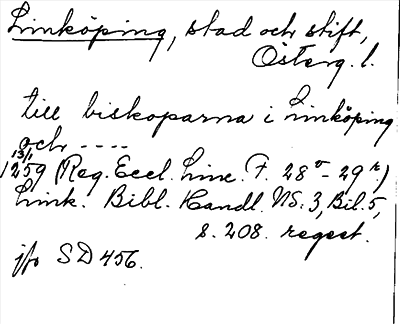 Linköping, stad och stift,
Österg. l.
till biskoparna i Linköping
och ----
13/1
1259 (Reg. Eccl. Linc. F. 28v - 29r.)
Link. Bibl. Handl. NS. 3, Bil. 5,
s. 208. regest.
jfr SD 456.